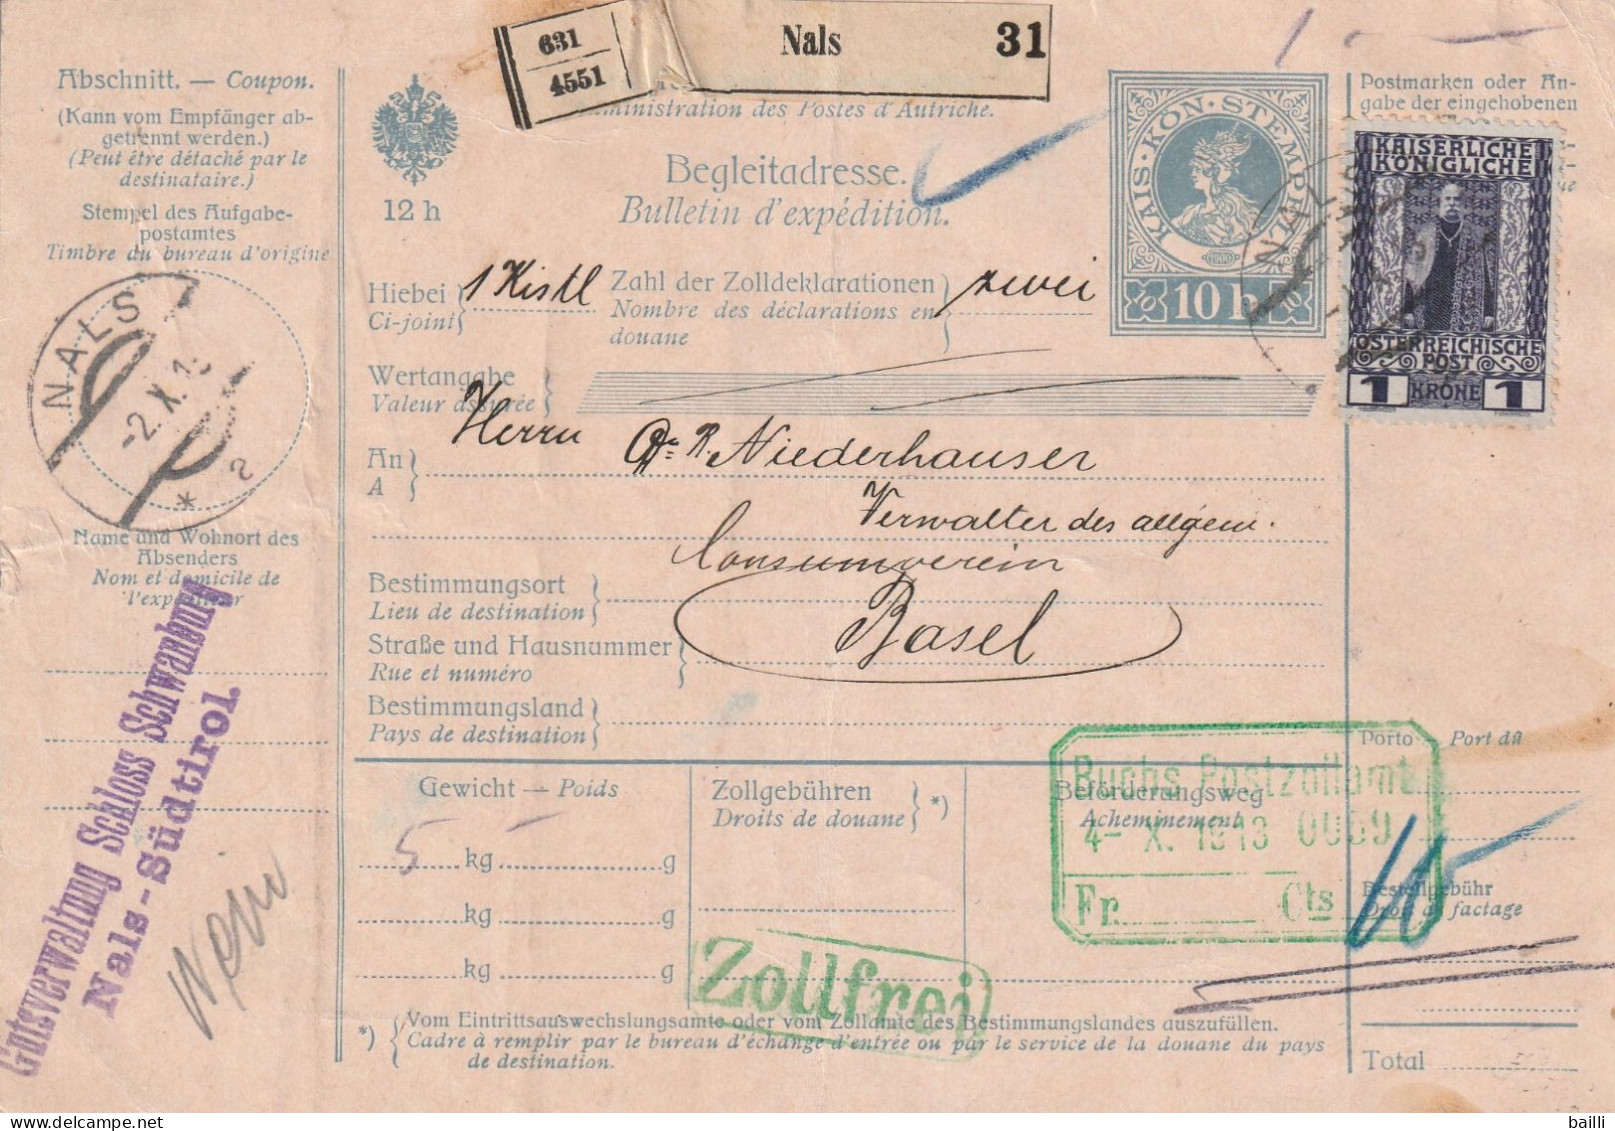 631
4551
Nals 31
Abschnitt. — Coupon.
(Kann vom Empfänger ab-
getrennt werden.)
(Peut être détaché par le
destinataire.)
Stempel des Aufgabe-
postamtes
Timbre du bureau d'origine
NALS
-2.X.1
a
Name und Wohnort des
Absenders
Nom et domicile de
l'expéditeur
Gutsverwaltung Schloss Schwanburg
Nals-Südtirol.
12 h
ministration des Postes d'Autriche.
Begleitadresse.
Bulletin d'expédition.
KAIS·KÖN·STEMPEL
1900
10 h
10
Postmarken oder An-
gabe der eingehobenen
NALS
KAISERLICHE
KÖNIGLICHE
ÖSTERREICHISCHE
POST
1 KRONE 1
Hiebei 1 Kistl Zahl der Zolldeklarationen zwei
Ci-joint Nombre des déclarations en
douane
Wertangabe
Valeur assurée
Herrn Dr. R. Niederhauser
An
A
Verwalter des allgem.
Consumverein
Bestimmungsort
Lieu de destination
Basel
Straße und Hausnummer
Rue et numéro
Bestimmungsland
Pays de destination
Gewicht — Poids
5 — kg g
kg g
kg g
Zollgebühren *)
Droits de douane
Beförderungsweg
Acheminement
Buchs Postzollamt
4- X. 1913 0059
Fr. Cts
Zollfrei
Porto — Port dû
Bestellgebühr
Droit de factage
Total
*) Vom Eintrittsauswechslungsamte oder vom Zollamte des Bestimmungslandes auszufüllen.
Cadre à remplir par le bureau d'échange d'entrée ou par le service de la douane du pays
de destination.
bailli